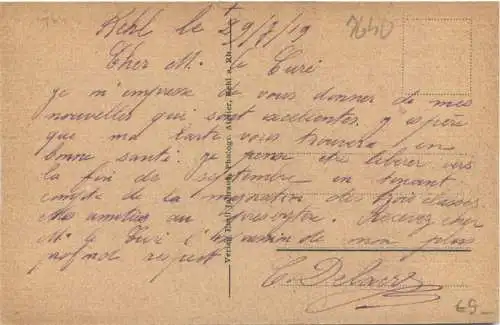 Kehl le 29/7/19
7640
Cher M. le Curé
je m'empresse de vous donner de mes
nouvelles qui sont excellentes. j'espère
que ma carte vous trouvera en
bonne santé. je pense être libérer vers
la fin de septembre en tenant
compte de la des trois classes.
Mes amitiés au presbytère. Recevez cher
M. le Curé l' de mon plus
profond respect
C.
69 —
Verlag Emil Photogr. Atelier, Kehl a. Rh.